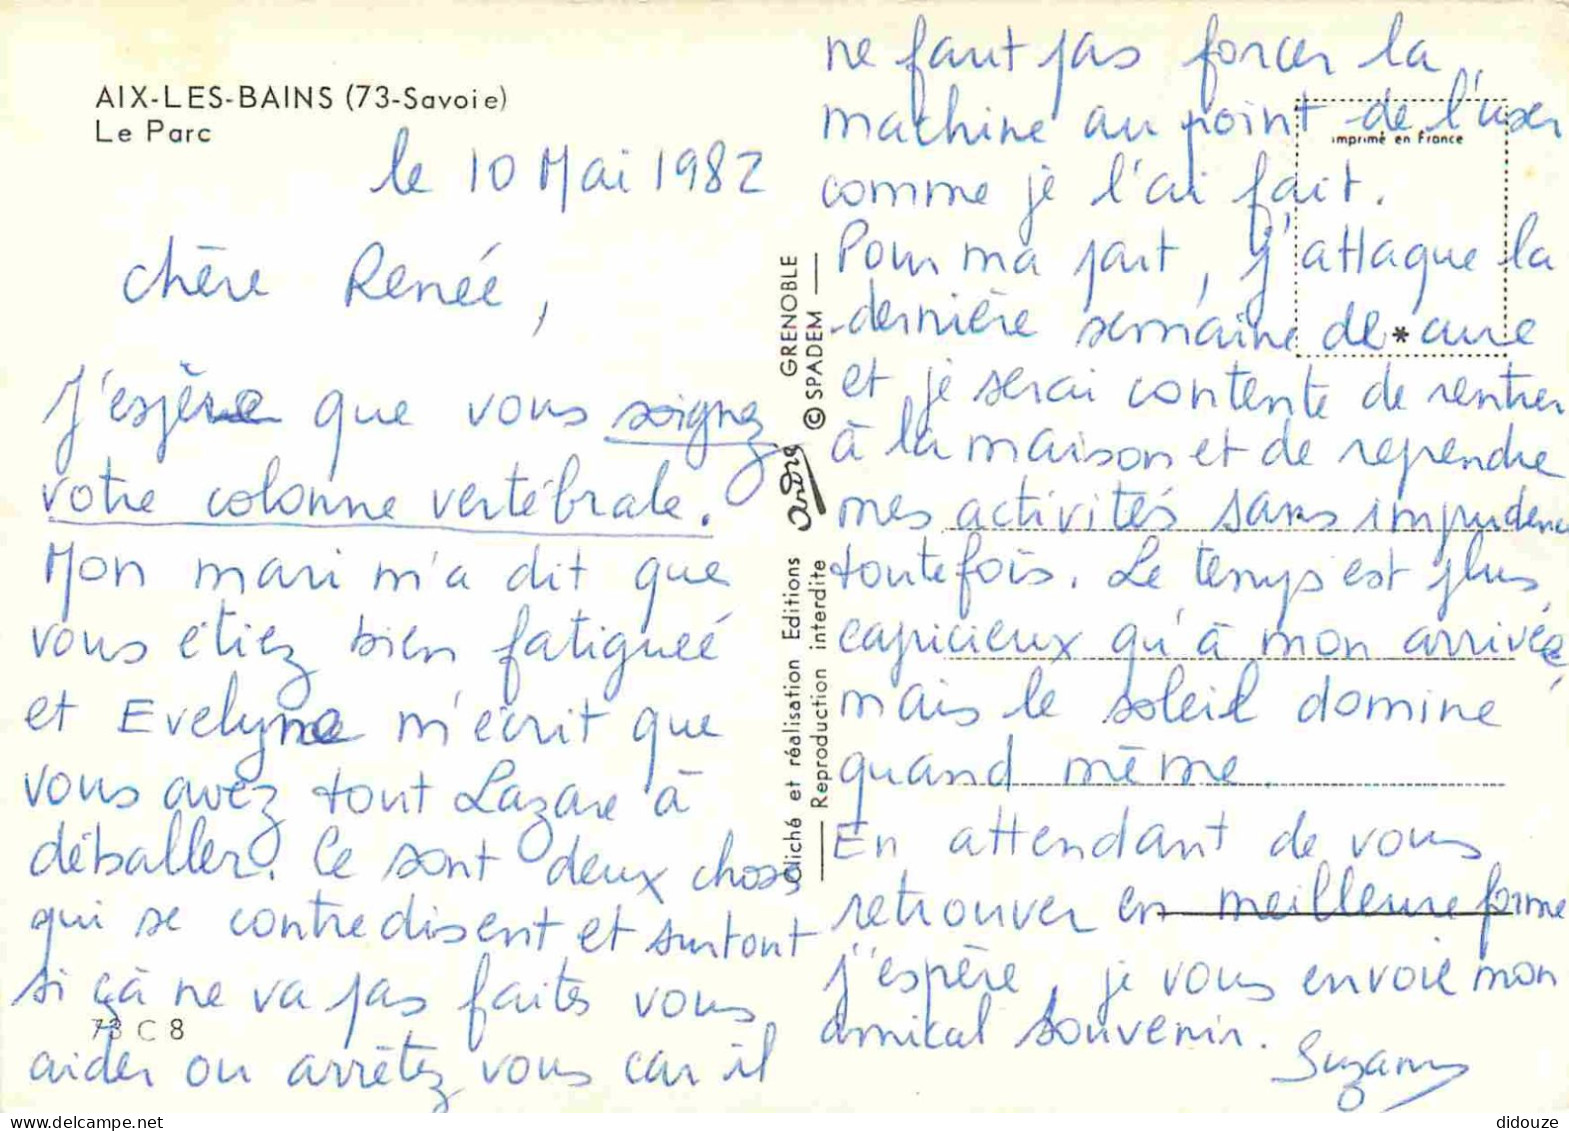 AIX-LES-BAINS (73-Savoie)
Le Parc
le 10 Mai 1982
chère Renée,
J'espère que vous soignez
votre colonne vertébrale.
Mon mari m'a dit que
vous étiez bien fatigueé
et Evelyne m'écrit que
vous avez tout Lazare à
déballer. Ce sont deux choses
qui se contredisent et surtout
si çà ne va pas faites vous
aider ou arrêtez vous car il
73 C 8
Cliché et réalisation Editions André GRENOBLE
Reproduction interdite © SPADEM
imprimé en France
ne faut pas forcer la
machine au point de l'user
comme je l'ai fait.
Pour ma part, j'attaque la
dernière semaine de cure
et je serai contente de rentrer
à la maison et de reprendre
mes activités sans imprudence
toutefois. Le temps est plus
capricieux qu'à mon arrivée,
mais le soleil domine
quand même.
En attendant de vous
retrouver en meilleure forme
j'espère, je vous envoie mon
amical souvenir.
Suzanne
*
didouze